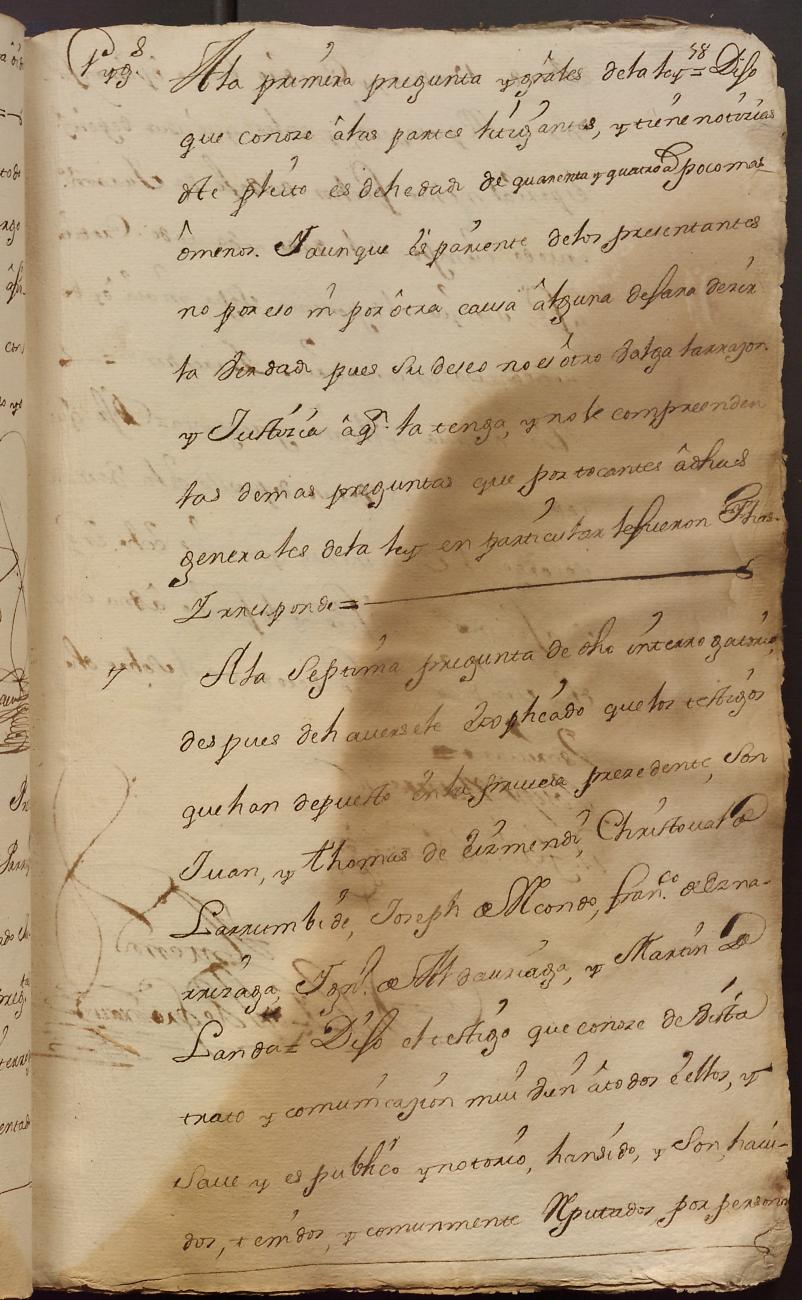 1ª y g.s
58
A la primera pregunta y grâles dela ley = Dijo
que conoze âlas partes litigantes, y tiene notizias
deste pleito es dehedad de quarenta y quatro a.s poco mas
ômenos. Iaunque es pariente delos presentantes
no por eso ni por ôtra causa âlguna dejara dezir
la verdad pues su deseo no es ôtro balga larrazon
y Justizia âq.n la tenga, y no le compreenden
las demas preguntas que por tocantes âdhas
generales dela ley en particular lefueron fhas
Irresponde =
7 Ala Septima pregunta de dho interrogatorio,
despues dehaversele êxpliêado que los testigos
que han depuesto ênla prueva prezedente, Son
Juan, y Thomas de Eizmendi, Christoval de
Larrumbide, Joseph de Elicondo, fran.co de Ezna-
rrizaga, Ign.o de Aldauriaga, y Martin de
Landa = Dijo eltestigo que conoze de bista
trato y comunicazion mui bien âtodos êllos, y
save y es publico ynotorio, hansido, y Son, havi-
dos, tenidos, y comunmente Rputados por personas